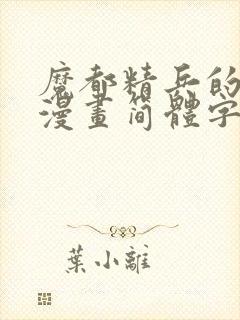 魔都精兵的
漫畫简體字
葉小離